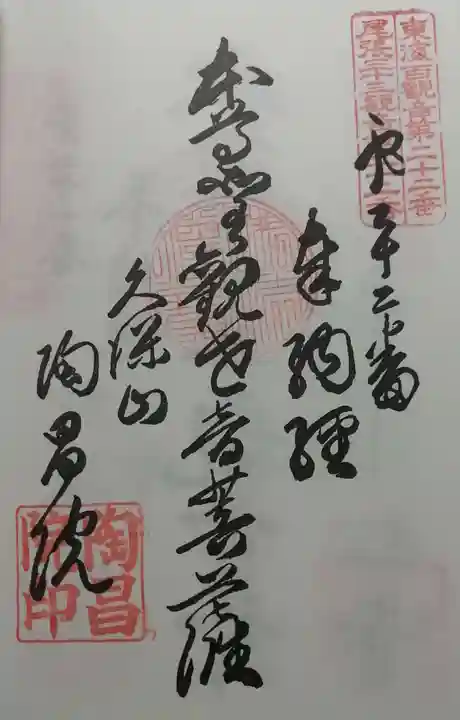 東海百観音第二十二番
尾張三十三観音第二十二番
第二十二番
奉納経
本尊聖観世音菩薩
久保山
陶昌院
陶昌
院印